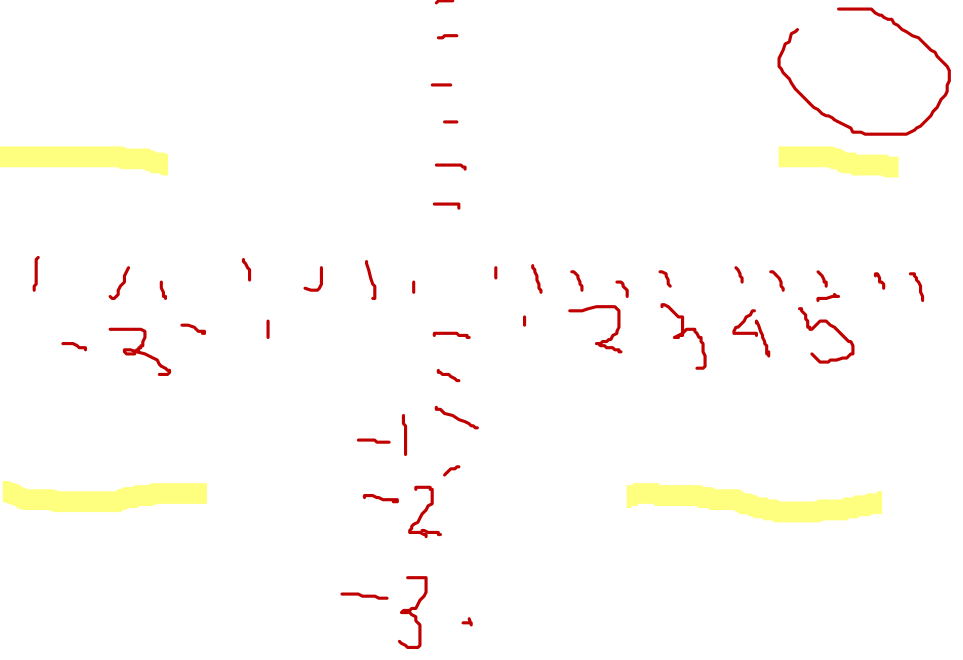 -2 -1 2 3 4 5
-1
-2
-3